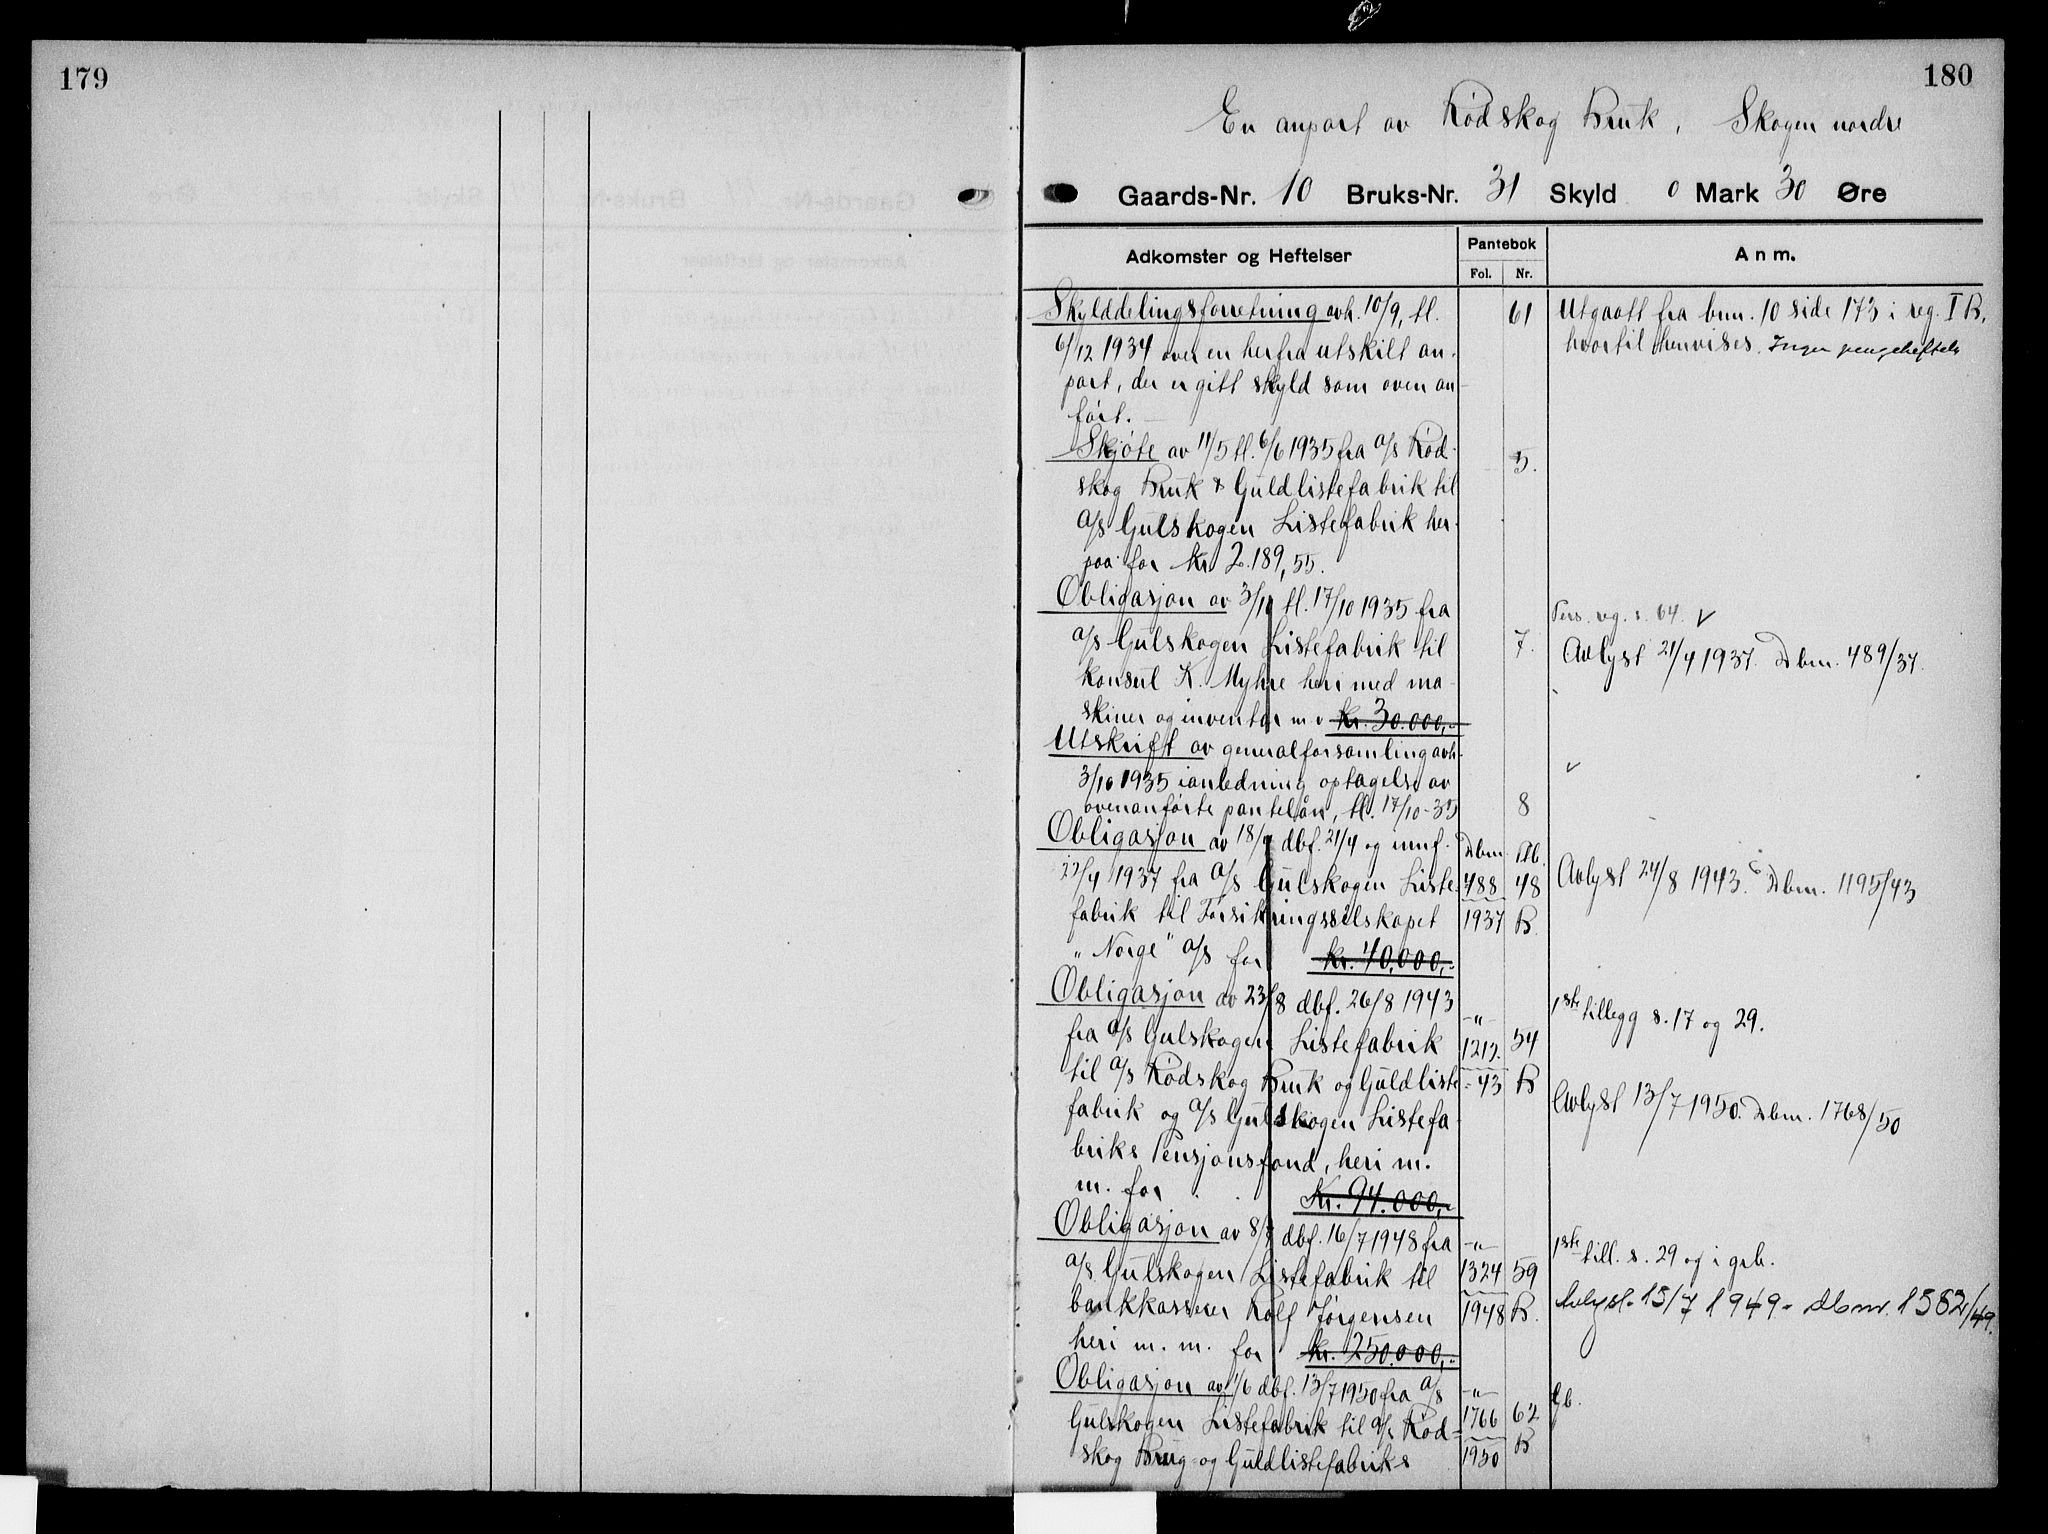 179
180
En anpart av Rødskog Bruk, Skogen nordre
Gaards-Nr. 10 Bruks-Nr. 31 Skyld 0 Mark 30 Øre
Adkomster og Heftelser
Pantebok
Fol. Nr.
Anm.
Skylddelingsforretning avh. 10/9, tl.
61
6/12 1934 over en herfra utskilt an-
part, der er gitt skyld som oven an-
ført.
Utgaatt fra bnr. 10 side 173 i reg. I B,
hvortil henvises. Ingen pengeheftels
Skjøte av 11/5 tl. 6/6 1935 fra A/S Rød-
5.
skog Bruk & Guldlistefabrik til
A/S Gulskogen Listefabrik her-
paa for Kr 2.189,55.
Obligasjon av 3/10 tl. 17/10 1935 fra
Pers. reg. s. 64. v
A/S Gulskogen Listefabrik til
7.
Avlyst 21/4 1937. Dbnr. 489/37.
Konsul K. Myhre heri med ma-
skiner og inventar m v Kr. 30.000,-
Utskrift av generalforsamling avh.
3/10 1935 i anledning optagelse av
ovenanførte pantelån, tl. 17/10-35
8
Obligasjon av 18/4 dbf. 21/4 og innf.
Dbnr. Pb.
22/4 1937 fra A/S Gulskogen Liste-
488 48
Avlyst 24/8 1943. Dbnr. 1195/43
fabrik til Forsikringsselskapet
1937 B
"Norge" A/S for Kr. 40,000,-
Obligasjon av 23/8 dbf. 26/8 1943
-"-
1ste tillegg s. 17 og 29.
fra A/S Gulskogen Listefabrik
1212. 54
til A/S Rødskog Bruk og Guldliste-
-43 B
fabrik og A/S Gulskogen Listefa-
Avlyst 13/7 1950. Dbnr. 1768/50
briks Pensjonsfond, heri m.
m. for Kr. 94.000,-
Obligasjon av 8/7 dbf. 16/7 1948 fra
-"-
1ste till. s. 29 og i grb.
A/S Gulskogen Listefabrik til
1324 59
bankkasserer Rolf Jørgensen
1948 B.
Avlyst 15/7 1949 - dbnr. 1582/49.
heri m. m. for Kr. 250.000,-
Obligasjon av 1/6 dbf. 13/7 1950 fra A/S
-"-
Gb.
Gulskogen Listefabrik til A/S Rød-
1766 62
skog Brug og Guldlistefabriks
1950 B